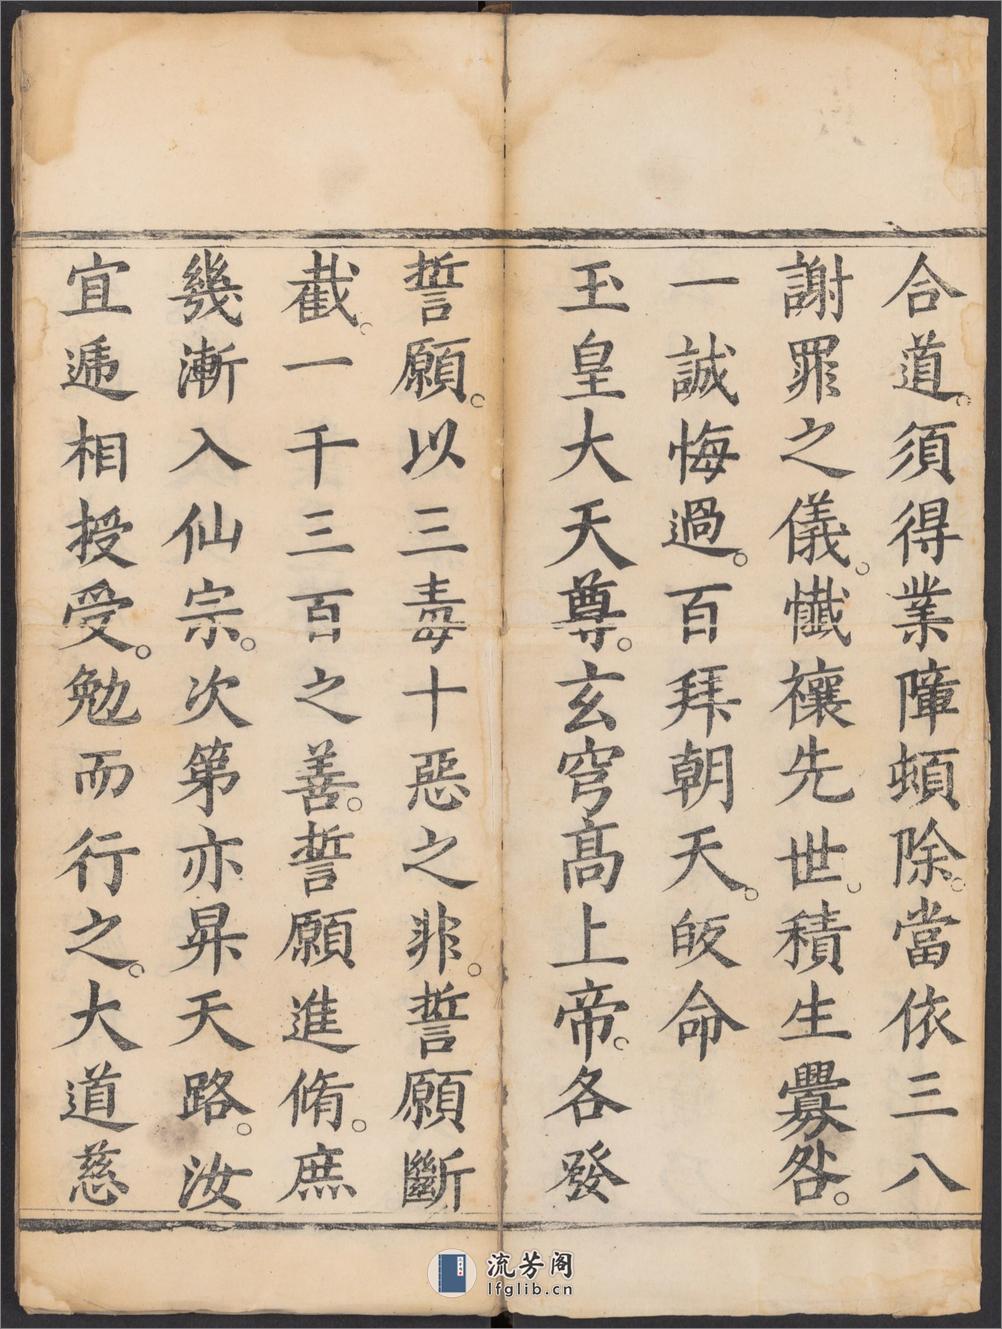 合道。須得業障頓除。當依三八
謝罪之儀。懺禳先世。積生釁咎。
一誠悔過。百拜朝天。皈命
玉皇大天尊。玄穹高上帝。各發
誓願。以三毒十惡之非。誓願斷
截。一千三百之善。誓願進脩。庶
幾漸入仙宗。次第亦昇天路。汝
宜遞相授受。勉而行之。大道慈
流芳阁
lfglib.cn